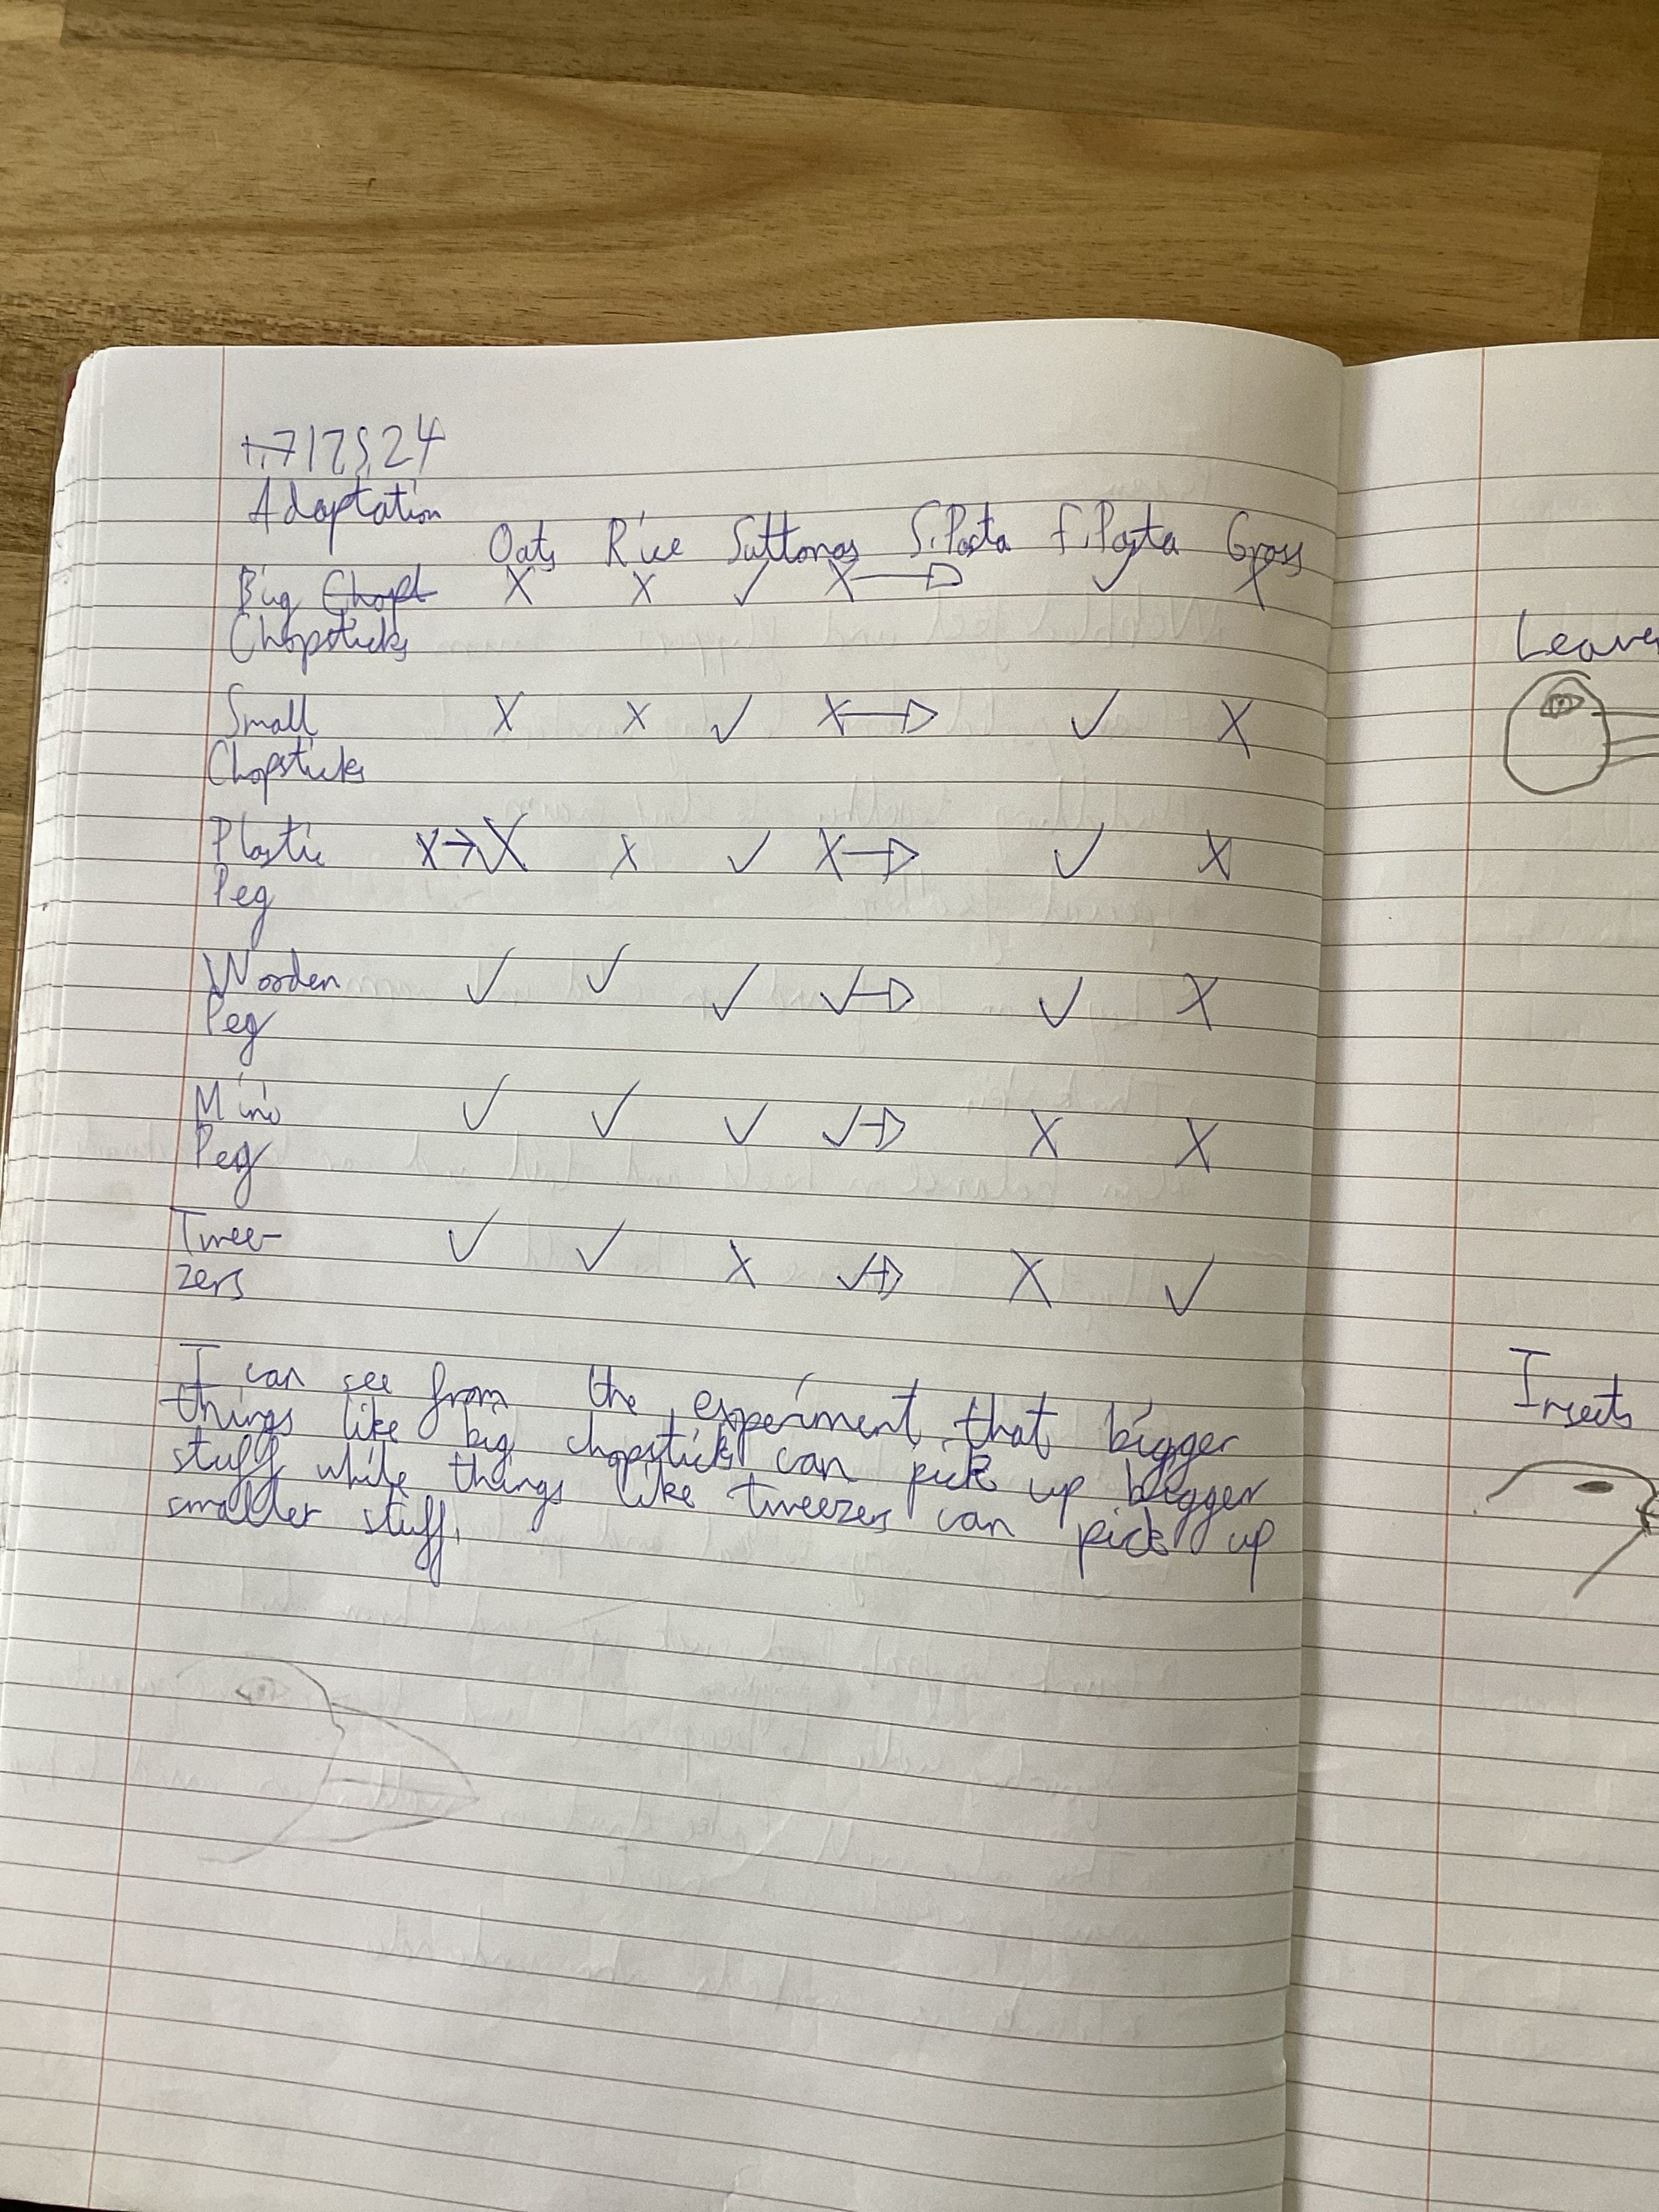 Adaptation
Oats Rice Suttonas S.Pasta F.Pasta Grass
Big Chopt X X ✓ X→ ✓ X
Chopsticks
Small X X ✓ X→ ✓ X
Chopsticks
Plastic X→X X ✓ X→ ✓ X
Peg
Wooden ✓ ✓ ✓ ✓→ ✓ X
Peg
Mini ✓ ✓ ✓ ✓→ X X
Peg
Twee- ✓ ✓ X ✓→ X ✓
zers
I can see from the experiment that bigger
things like big chopsticks can pick up bigger
stuff while things like tweezers can pick up
smaller stuff.
Insects